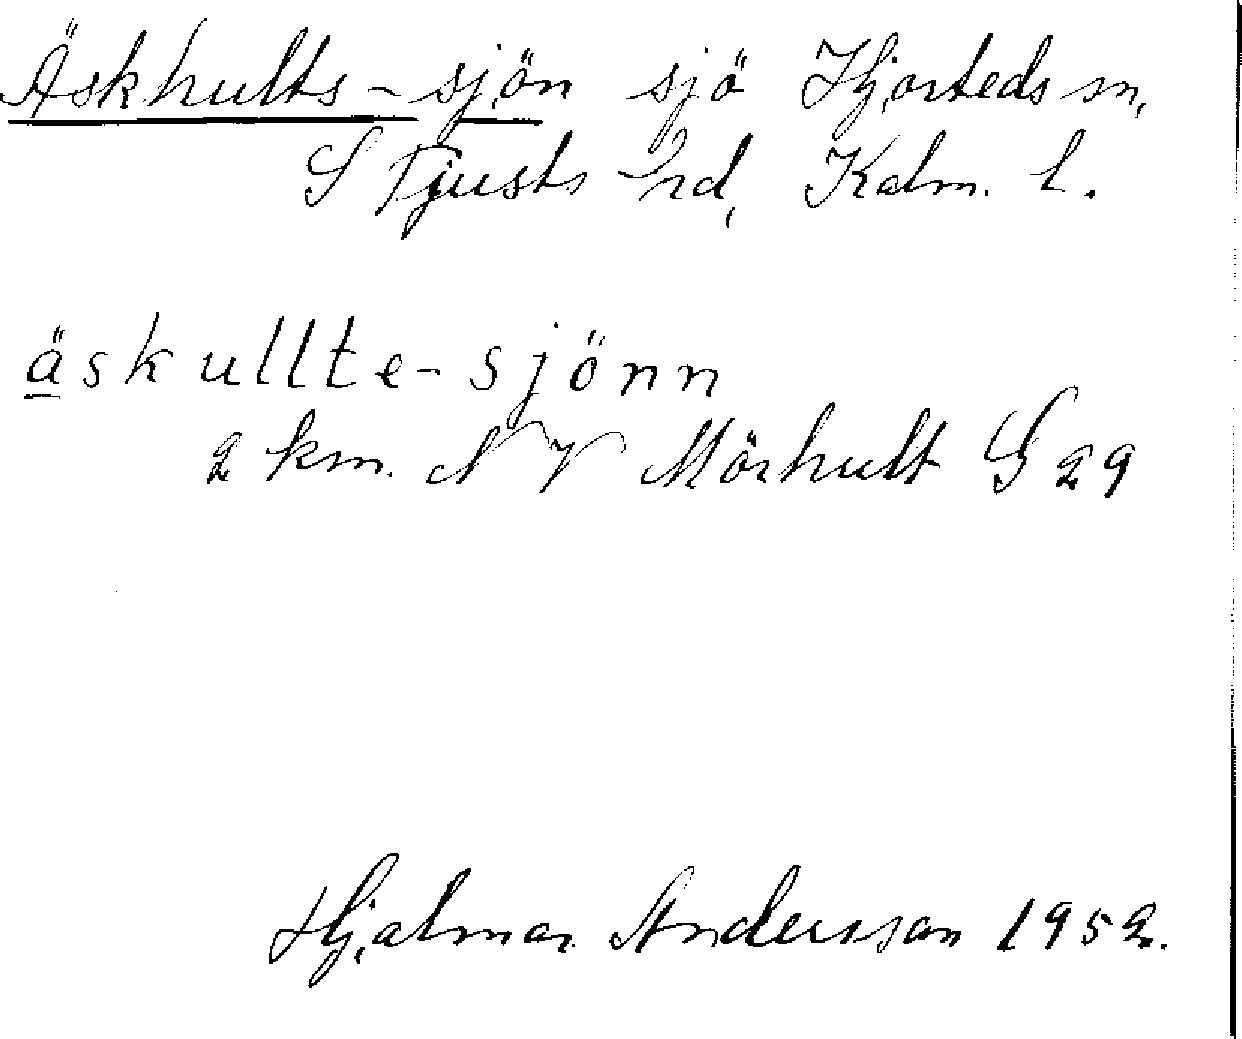 Äskhults-sjön sjö Hjorteds sn,
S Tjusts hd, Kalm. l.
äskullte-sjönn
2 km. NV Mörhult G 29
Hjalmar Andersson 1952.